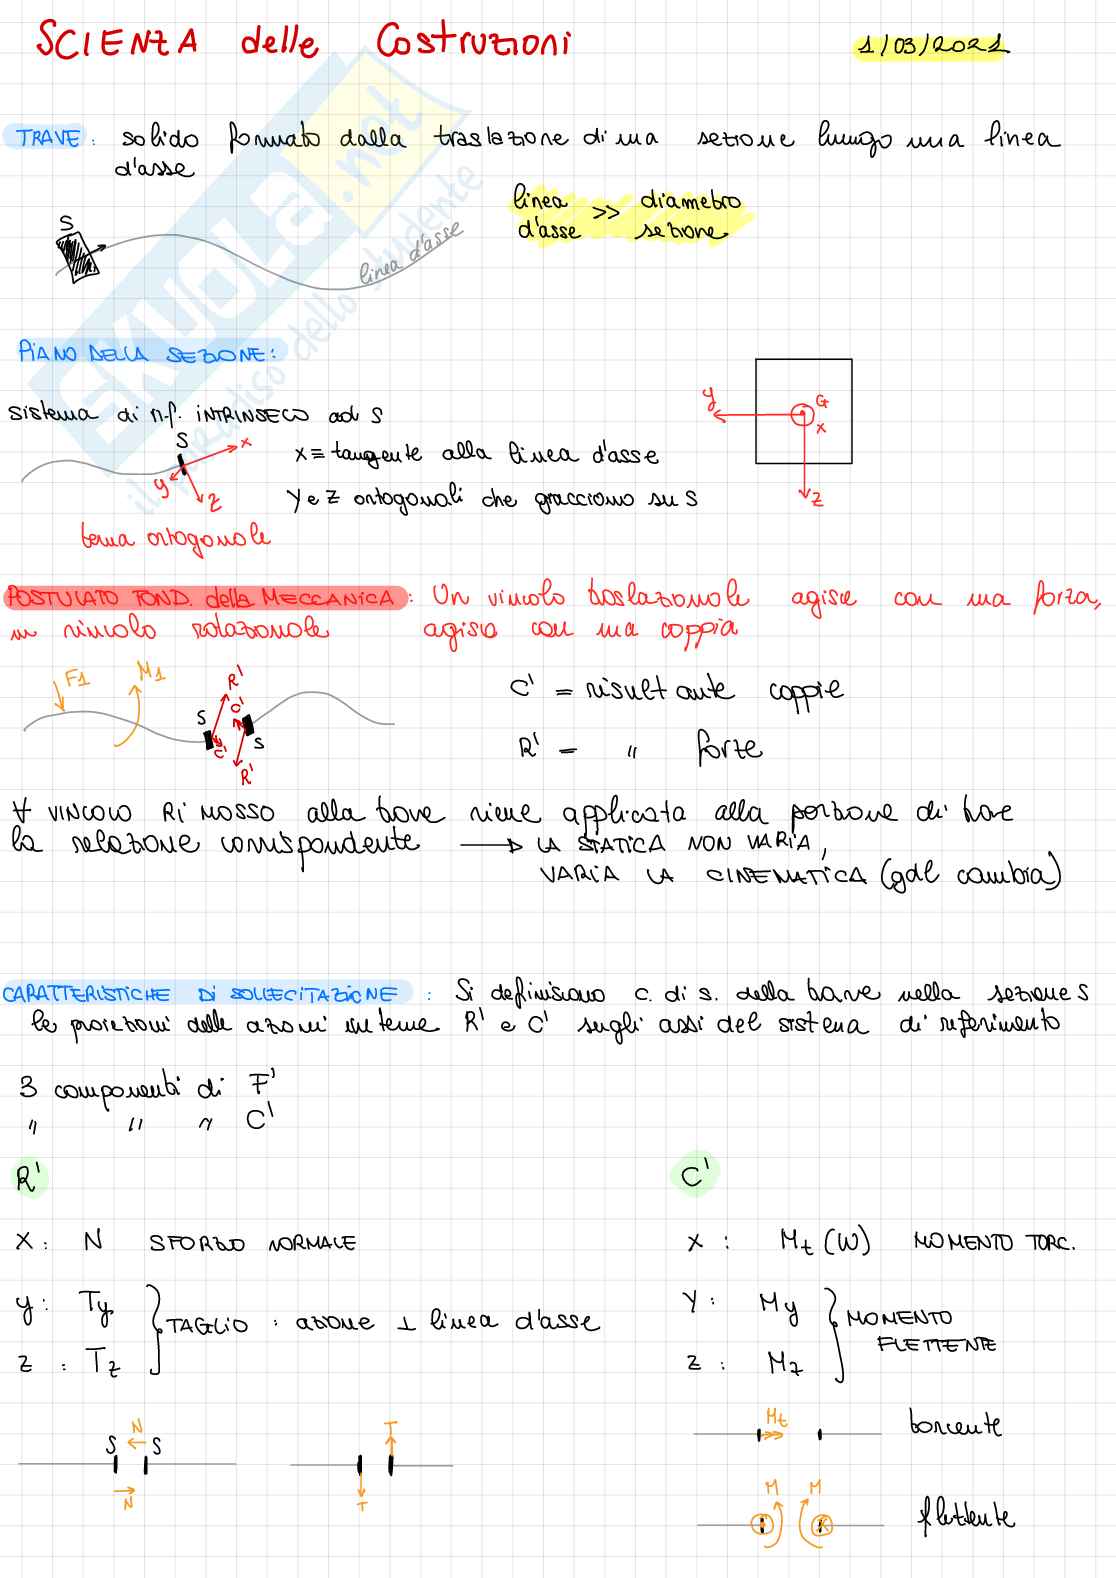 SCIENZA delle Costruzioni 1/03/2021
TRAVE: solido formato dalla traslazione di una sezione lungo una linea
d'asse
linea d'asse >> diametro sezione
S
linea d'asse
SKUOLA.net
il paradiso dello studente
PIANO DELLA SEZIONE:
sistema di r.f. INTRINSECO ad S
S
x
y
z
terna ortogonale
x ≡ tangente alla linea d'asse
y e z ortogonali che giacciono su S
y
G
x
z
POSTULATO FOND. della MECCANICA: Un vincolo traslazionale agisce con una forza,
un vincolo rotazionale agisce con una coppia
F1
M1
S
R'
C'
C'
S
R'
C' = risultante coppie
R' = " forze
∀ VINCOLO RIMOSSO alla trave viene applicata alla porzione di trave
la relazione corrispondente → LA STATICA NON VARIA,
VARIA LA CINEMATICA (gdl cambia)
CARATTERISTICHE DI SOLLECITAZIONE: Si definiscono c. di s. della trave nella sezione S
le proiezioni delle azioni interne R' e C' sugli assi del sistema di riferimento
3 componenti di F'
" " " C'
R'
x: N SFORZO NORMALE
y: Ty
z: Tz
TAGLIO: azione ⊥ linea d'asse
C'
x: Mt (W) MOMENTO TORC.
y: My
z: Mz
MOMENTO
FLETTENTE
S
N
S
N
T
T
Mt
torcente
M
M
flettente